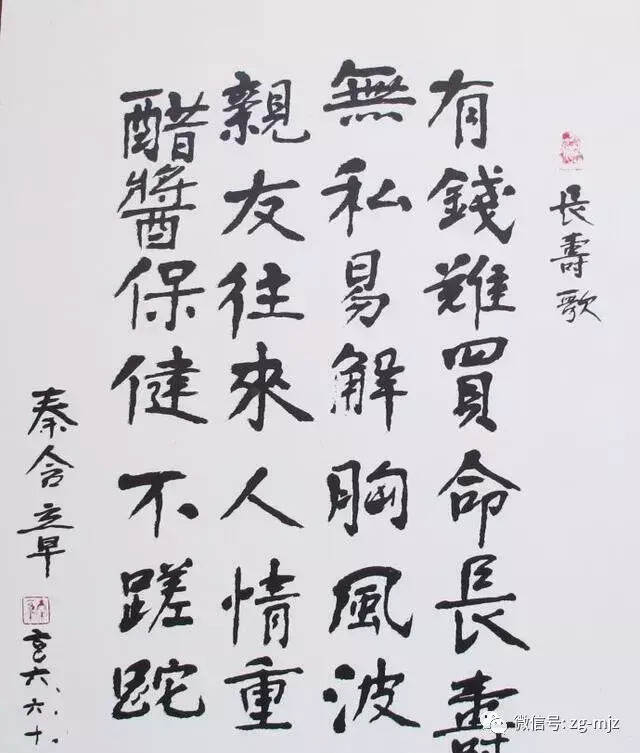 長壽歌
有錢難買命長壽
無私易解胸風波
親友往來人情重
醋醬保健不蹉跎
秦含立早
六.六.十.
微信号: zg-mjz